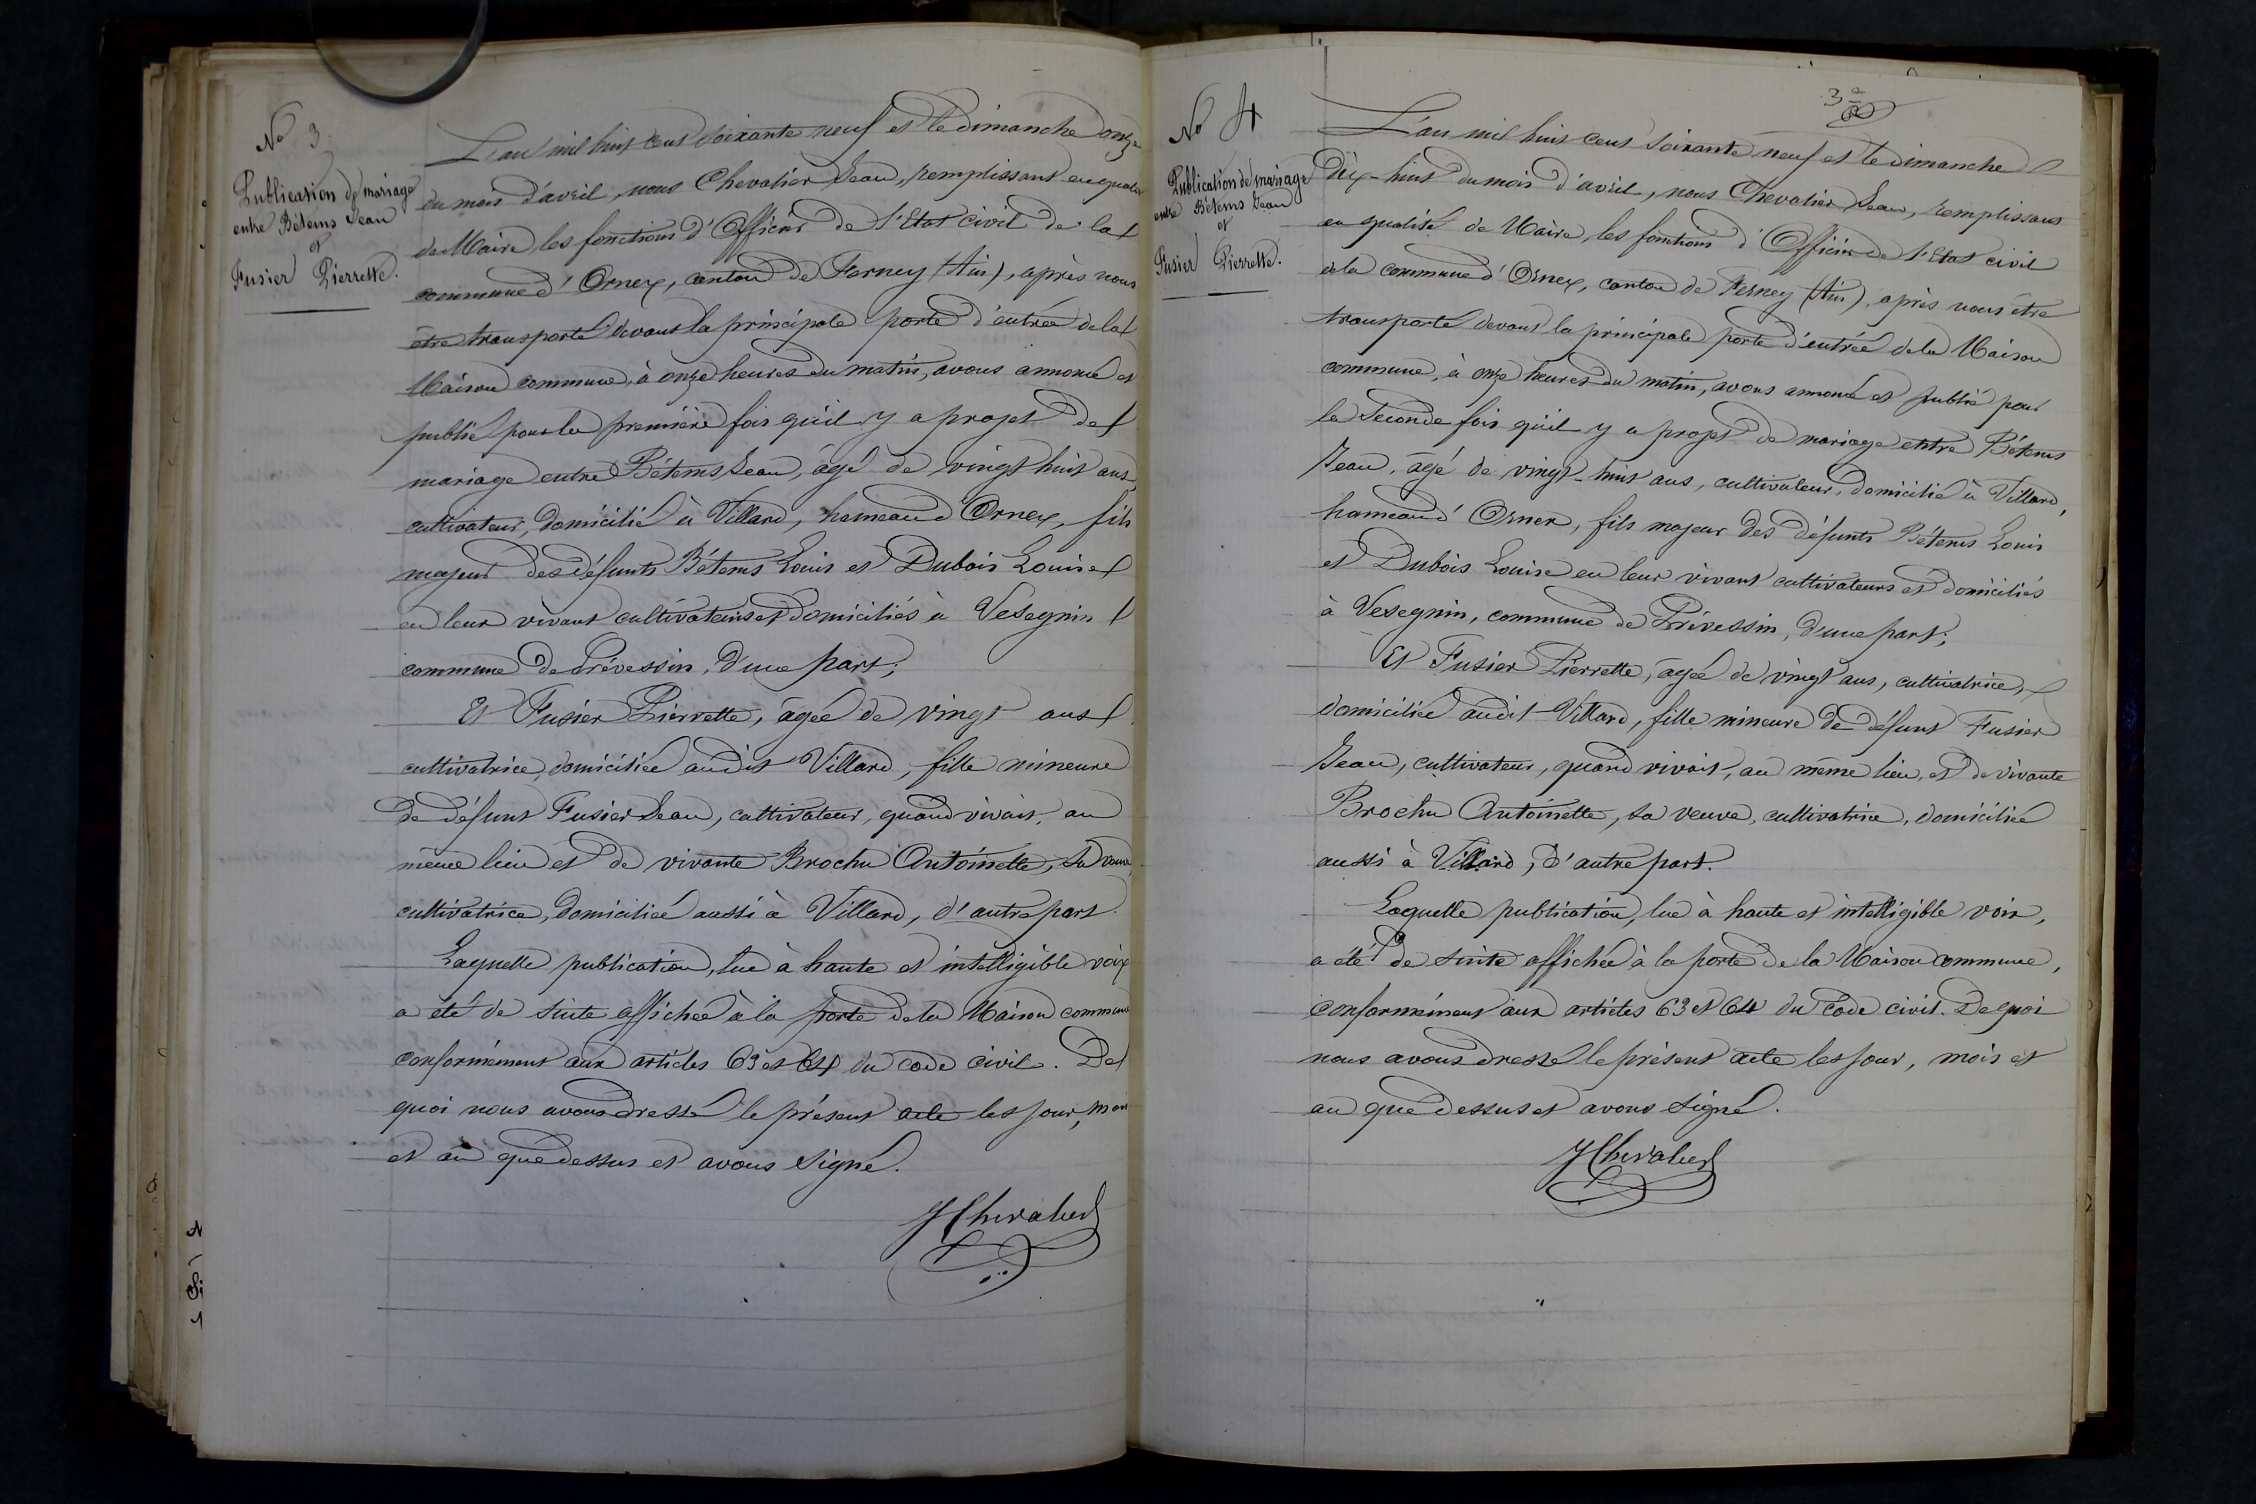 No 3
Publication de mariage
entre Bétems Jean
et
Fusier Pierrette.
L'an mil huit cent soixante neuf et le dimanche onze
du mois d'avril, nous Chevalier Jean, remplissant en qualité
de Maire les fonctions d'Officier de l'Etat civil de la
commune d'Ornex, canton de Ferney (Ain), après nous
être transporté devant la principale porte d'entrée de la
Maison commune, à onze heures du matin, avons annoncé et
publié pour la première fois qu'il y a projet de
mariage entre Bétems Jean, âgé de vingt huit ans,
cultivateur, domicilié à Villard, hameau d'Ornex, fils
majeur des défunts Bétems Louis et Dubois Louise
en leur vivant cultivateurs et domiciliés à Vesegnin
commune de Prévessin, d'une part;
Et Fusier Pierrette, âgée de vingt ans
cultivatrice, domiciliée audit Villard, fille mineure
de défunt Fusier Jean, cultivateur, quand vivait, au
même lieu et de vivante Brochu Antoinette, sa veuve,
cultivatrice, domiciliée aussi à Villard, d'autre part.
Laquelle publication, lue à haute et intelligible voix
a été de suite affichée à la porte de la Maison commune
conformément aux articles 63 et 64 du code civil. De
quoi nous avons dressé le présent acte les jour, mois
et an que dessus et avons signé.
JChevalier
3e
No 4
Publication de mariage
entre Bétems Jean
et
Fusier Pierrette.
L'an mil huit cent soixante neuf et le dimanche
Dix-huit du mois d'avril, nous Chevalier Jean, remplissant
en qualité de Maire, les fonctions d'Officier de l'Etat civil
de la commune d'Ornex, canton de Ferney (Ain), après nous être
transporté devant la principale porte d'entrée de la Maison
commune, à onze heures du matin, avons annoncé et publié pour
la seconde fois qu'il y a projet de mariage entre Bétems
Jean, âgé de vingt-huit ans, cultivateur, domicilié à Villard,
hameau d'Ornex, fils majeur des défunts Bétems Louis
et Dubois Louise en leur vivant cultivateurs et domiciliés
à Vesegnin, commune de Prévessin, d'une part;
Et Fusier Pierrette, âgée de vingt ans, cultivatrice,
domiciliée audit Villard, fille mineure de défunt Fusier
Jean, cultivateur, quand vivait, au même lieu, et de vivante
Brochu Antoinette, sa veuve, cultivatrice, domiciliée
aussi à Villard, d'autre part.
Laquelle publication, lue à haute et intelligible voix,
a été de suite affichée à la porte de la Maison commune,
conformément aux articles 63 et 64 du code civil. De quoi
nous avons dressé le présent acte les jour, mois et
an que dessus et avons signé.
JChevalier